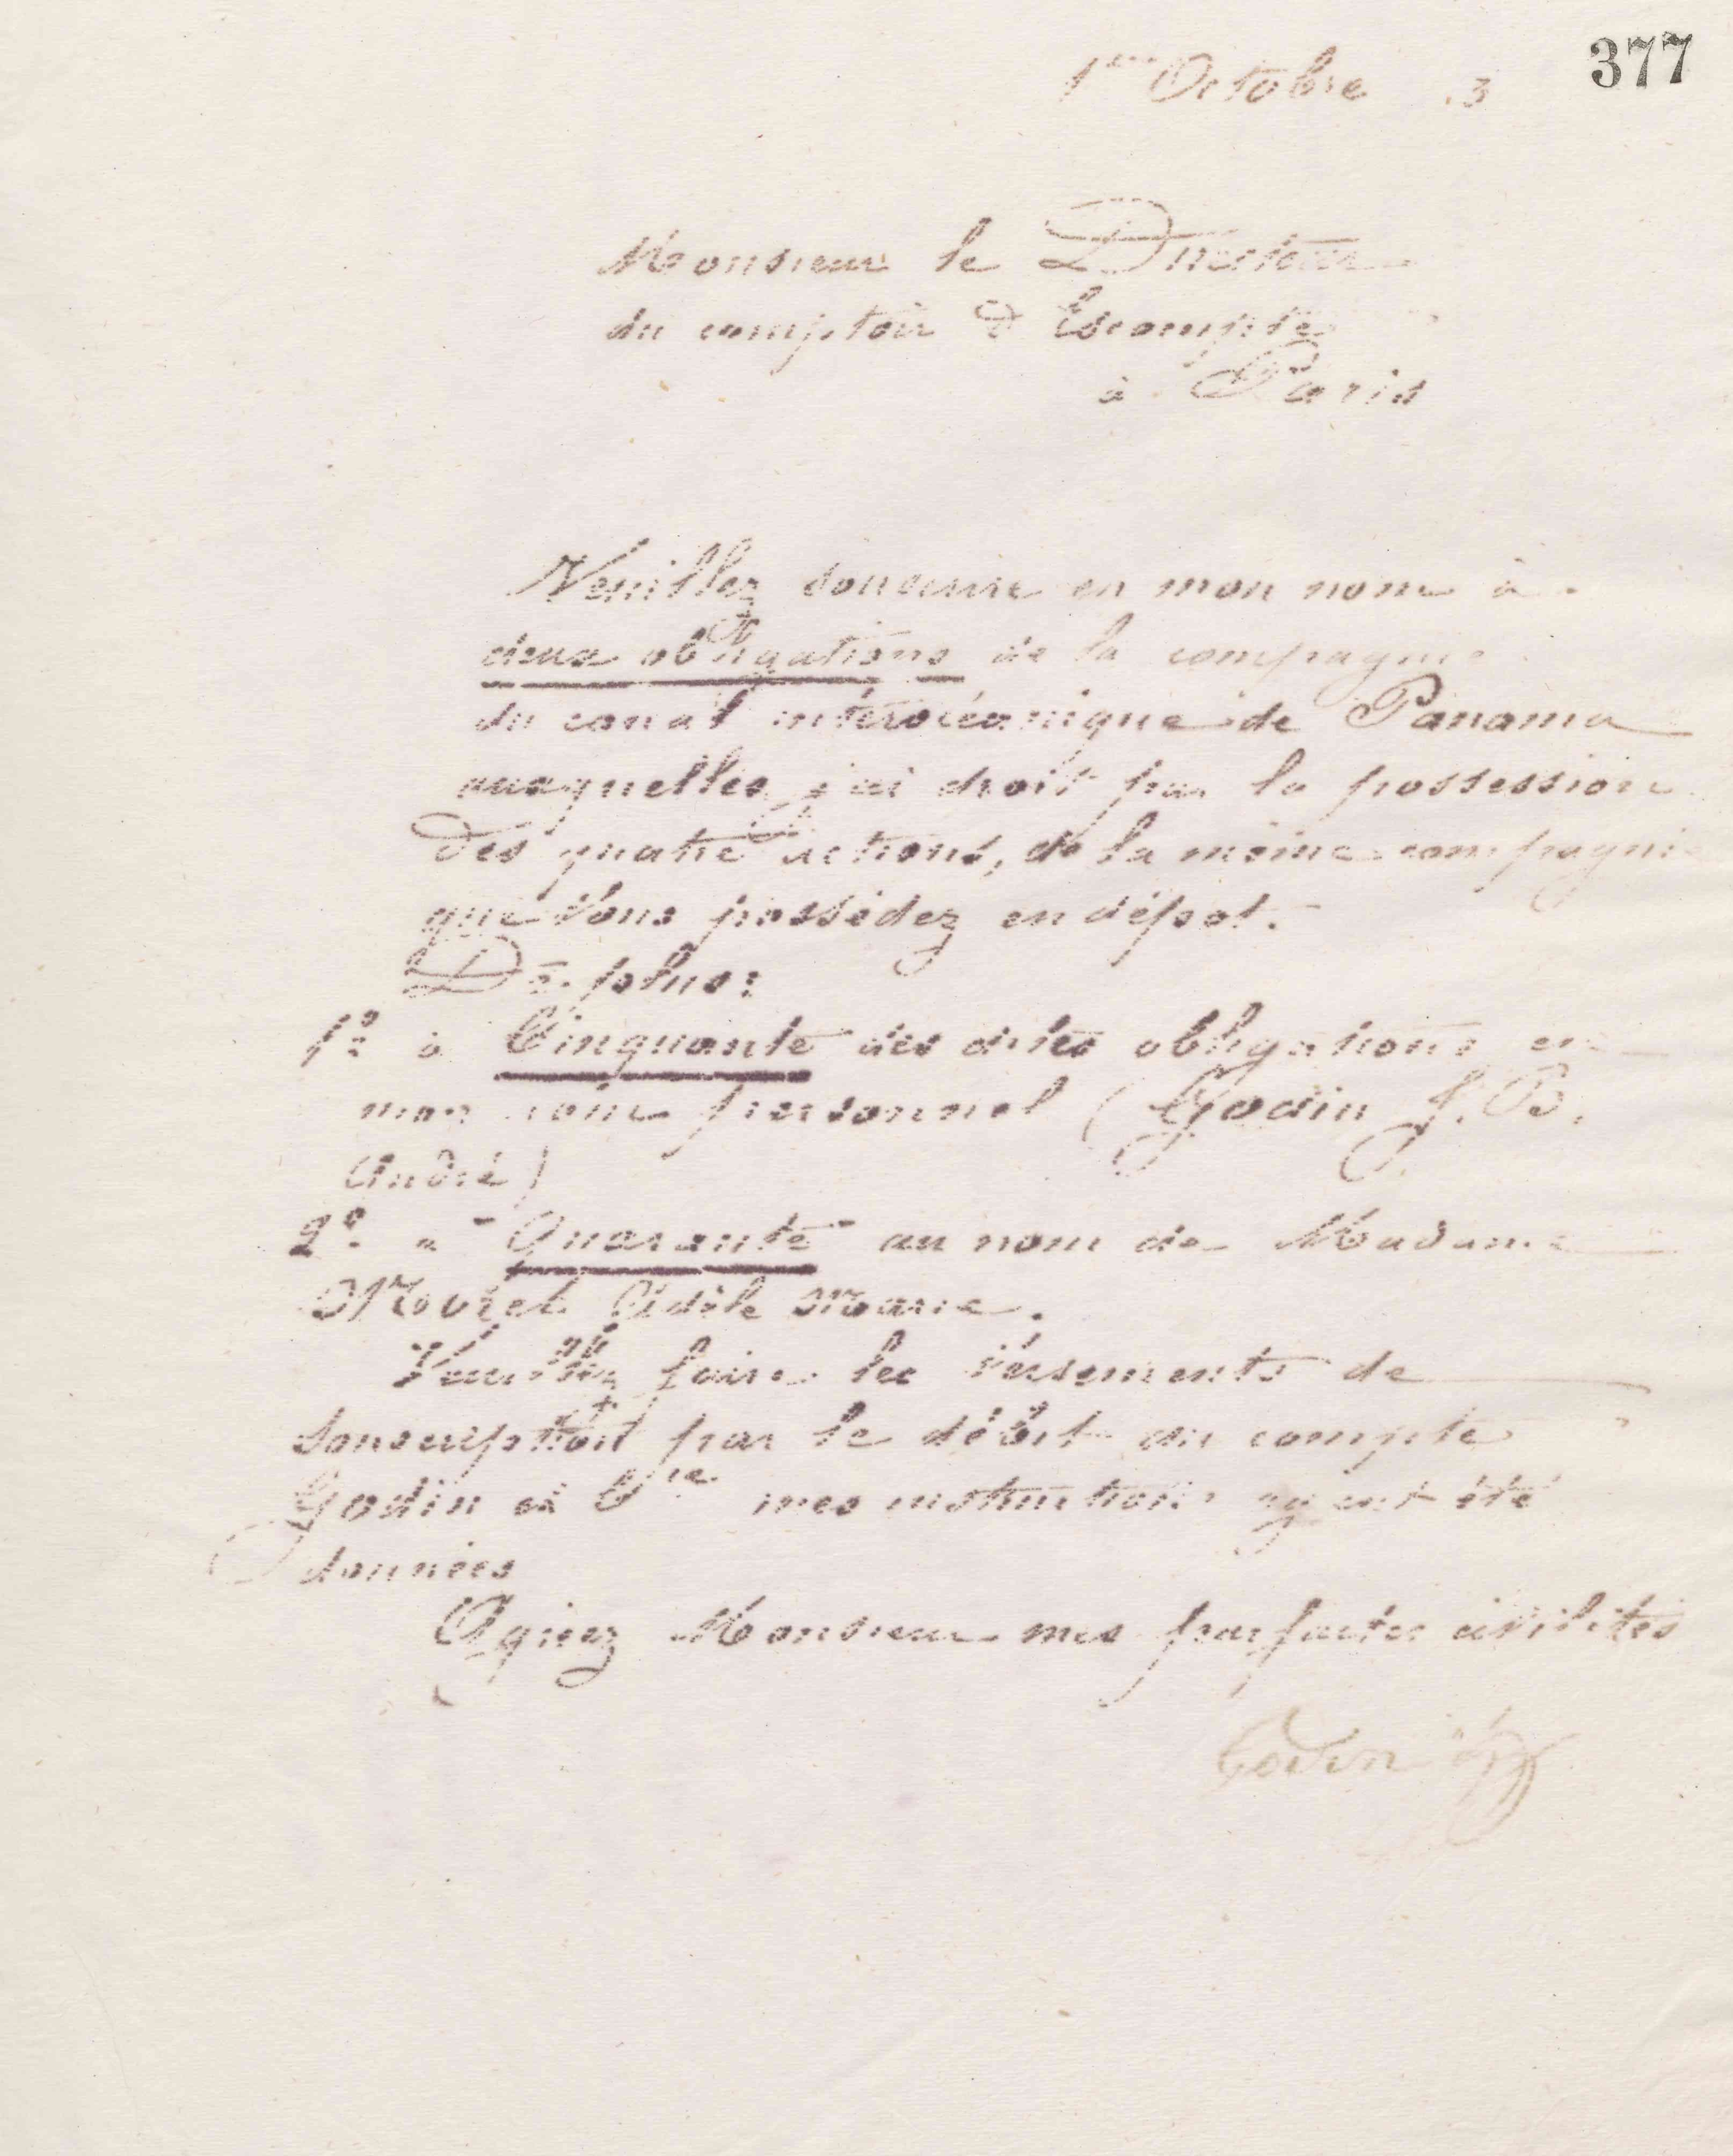 377
1er Octobre 3
Monsieur le Directeur
du comptoir d'Escompte
à Paris
Veuillez souscrire en mon nom à
deux obligations de la compagnie
du canal interocéanique de Panama
auxquelles j'ai droit par la possession
des quatre actions, de la même compagnie
que vous possédez en dépot.
De plus:
1º à Cinquante des dites obligations en
mon nom personnel (Godin J. B.
André)
2º à Quarante au nom de Madame
Moret Adèle Marie.
Veuillez faire les versements de
souscription par le débit du compte
Godin et Cie mes instructions ayant été
données
Agréez Monsieur mes parfaites civilités
Godin